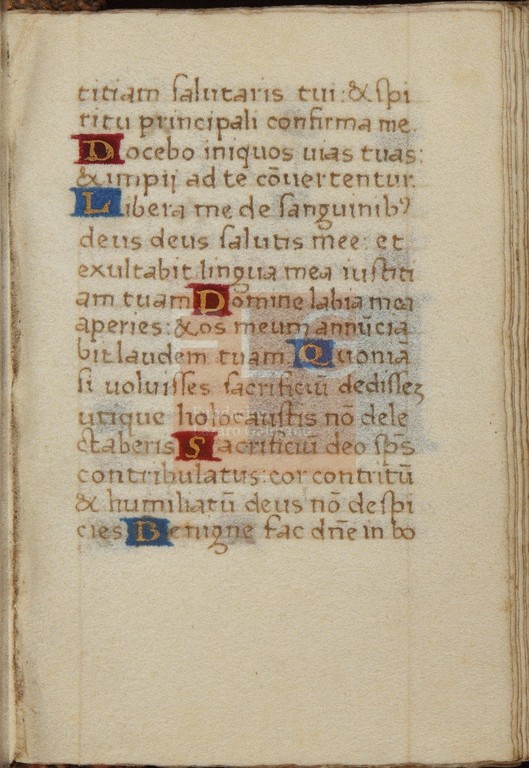 titiam salutaris tui: & spi
ritu principali confirma me.
Docebo iniquos uias tuas:
& impij ad te cōuertentur.
Libera me de sanguinibꝰ
deus deus salutis mee: et
exultabit lingua mea iustiti
am tuam Domine labia mea
aperies: & os meum annūcia
bit laudem tuam. Quoniā
si uoluisses sacrificiū dedissez
utique holocaustis nō dele
ctaberis Sacrificiū deo sp̄s
contribulatus: cor contritū
& humiliatū deus nō despi
cies Benigne fac dn̄e in bo